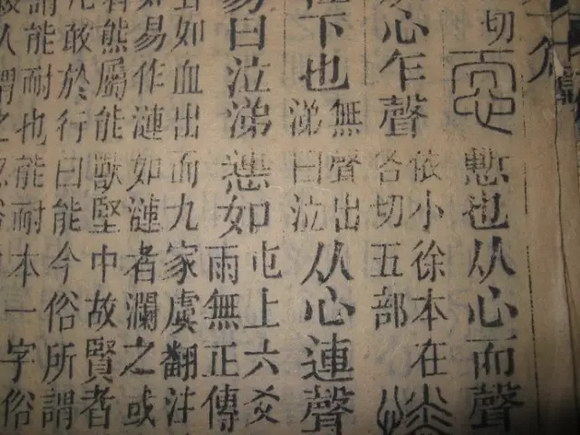 切
慙也从心而聲
心乍聲
依小徐本在
各切五部
下也
無聲出
涕曰泣
从心連聲
易曰泣涕㦁如
屯上六爻
雨無正傳
如血出而九家虞翻注
易作漣如漣者瀾之或
熊屬能獸堅中故賢者
敢於行曰能今俗所謂
能耐也能耐本一字俗